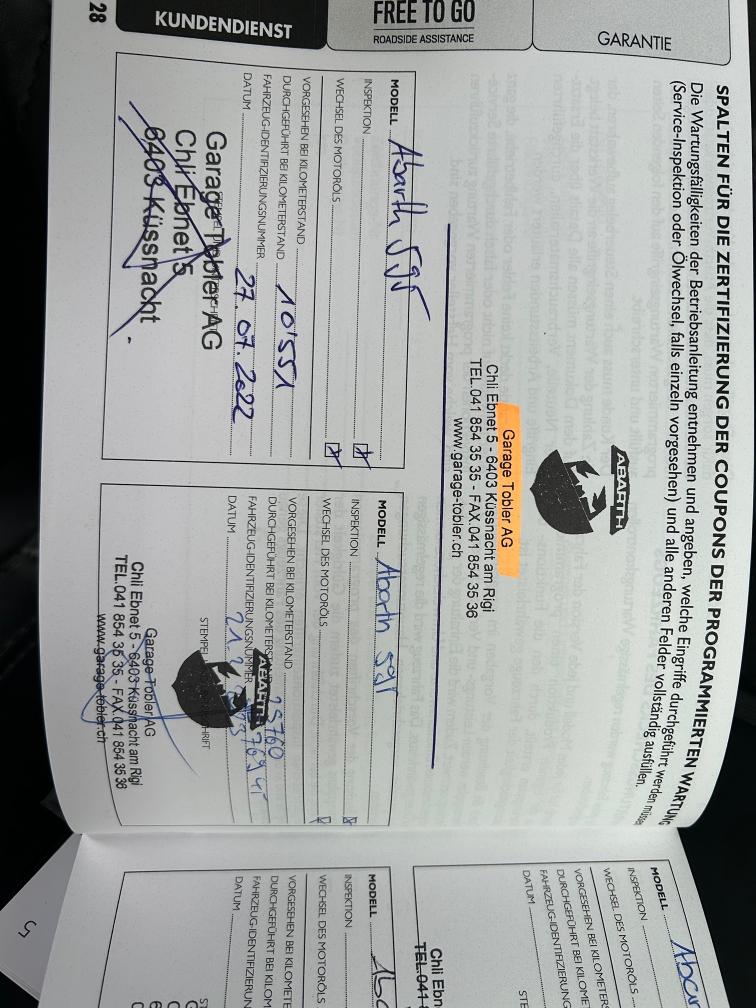 KUNDENDIENST
FREE TO GO
ROADSIDE ASSISTANCE
GARANTIE
28
SPALTEN FÜR DIE ZERTIFIZIERUNG DER COUPONS DER PROGRAMMIERTEN WARTUNG
Die Wartungsfälligkeiten der Betriebsanleitung entnehmen und angeben, welche Eingriffe durchgeführt werden müssen
(Service-Inspektion oder Ölwechsel, falls einzeln vorgesehen) und alle anderen Felder vollständig ausfüllen.
ABARTH
Garage Tobler AG
Chli Ebnet 5 - 6403 Küssnacht am Rigi
TEL.041 854 35 35 - FAX.041 854 35 36
www.garage-tobler.ch
MODELL Abarth 595
INSPEKTION x
WECHSEL DES MOTORÖLS x
VORGESEHEN BEI KILOMETERSTAND
DURCHGEFÜHRT BEI KILOMETERSTAND 10'551
FAHRZEUG-IDENTIFIZIERUNGSNUMMER
DATUM 27.07.2022
Garage Tobler AG
Chli Ebnet 5
6403 Küssnacht
MODELL Abarth 595
INSPEKTION x
WECHSEL DES MOTORÖLS x
VORGESEHEN BEI KILOMETERSTAND
DURCHGEFÜHRT BEI KILOMETERSTAND
FAHRZEUG-IDENTIFIZIERUNGSNUMMER
DATUM
STEMPEL
ABARTH
Garage Tobler AG
Chli Ebnet 5 - 6403 Küssnacht am Rigi
TEL.041 854 35 35 - FAX.041 854 35 36
www.garage-tobler.ch
MODELL Abar
INSPEKTION
WECHSEL DES MOTORÖLS
VORGESEHEN BEI KILOMETERS
DURCHGEFÜHRT BEI KILOMETER
FAHRZEUG-IDENTIFIZIERUNG
DATUM
STE
Chli Ebn
TEL.041
MODELL Aba
INSPEKTION
WECHSEL DES MOTORÖLS
VORGESEHEN BEI KILOMETE
DURCHGEFÜHRT BEI KILOMET
FAHRZEUG-IDENTIFIZIERUN
DATUM
ST
5